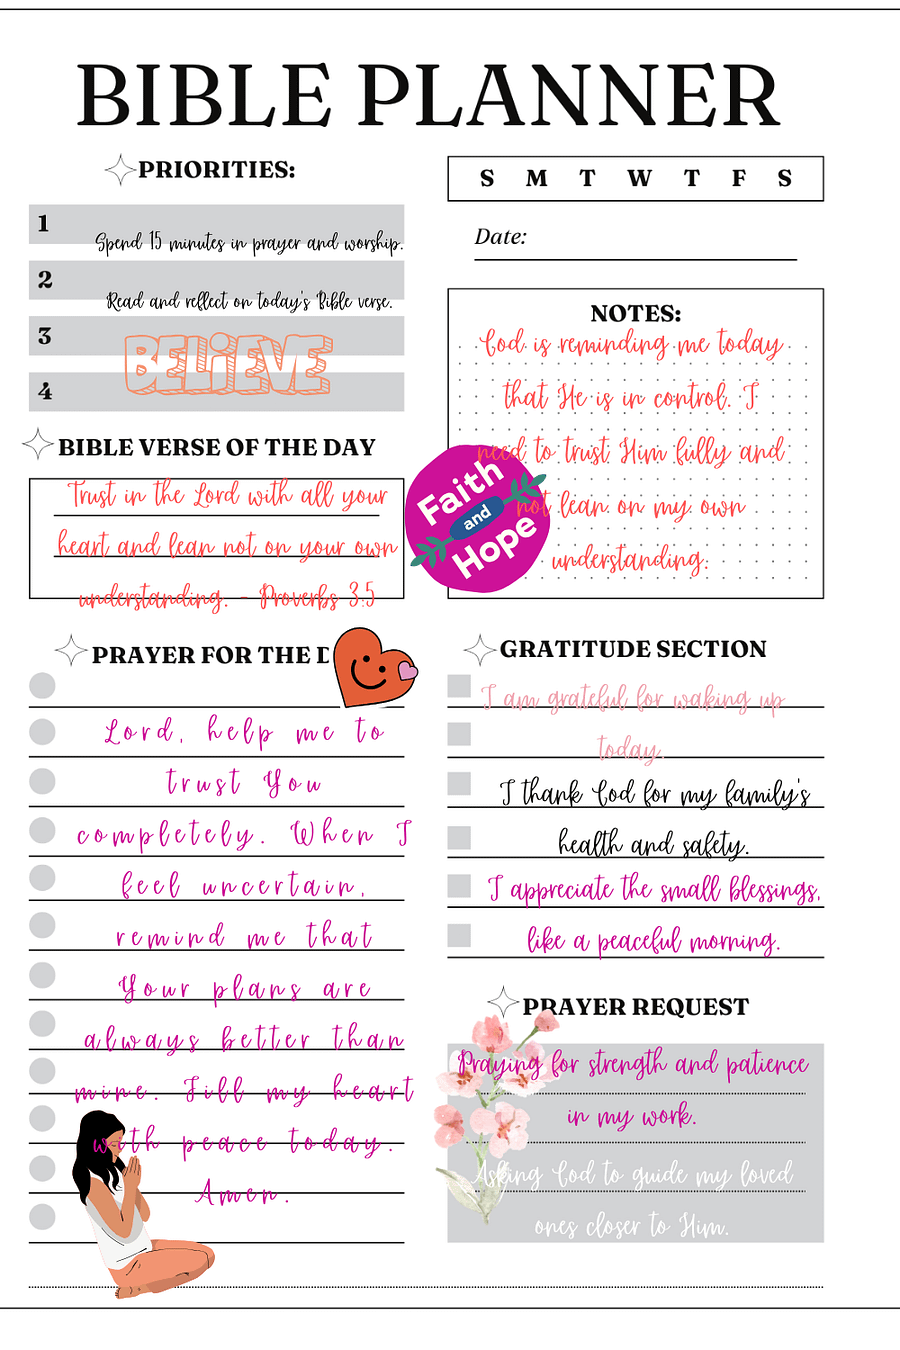 BIBLE PLANNER
PRIORITIES:
1
Spend 15 minutes in prayer and worship.
2
Read and reflect on today's Bible verse.
3
BELiEVE
4
BIBLE VERSE OF THE DAY
Trust in the Lord with all your
heart and lean not on your own
understanding. - Proverbs 3:5
PRAYER FOR THE D
Lord, help me to
trust You
completely. When I
feel uncertain,
remind me that
Your plans are
always better than
mine. Fill my heart
with peace today.
Amen.
S M T W T F S
Date:
NOTES:
God is reminding me today
that He is in control. I
need to trust Him fully and
not lean on my own
understanding.
Faith
and
Hope
GRATITUDE SECTION
I am grateful for waking up
today.
I thank God for my family's
health and safety.
I appreciate the small blessings,
like a peaceful morning.
PRAYER REQUEST
Praying for strength and patience
in my work.
Asking God to guide my loved
ones closer to Him.